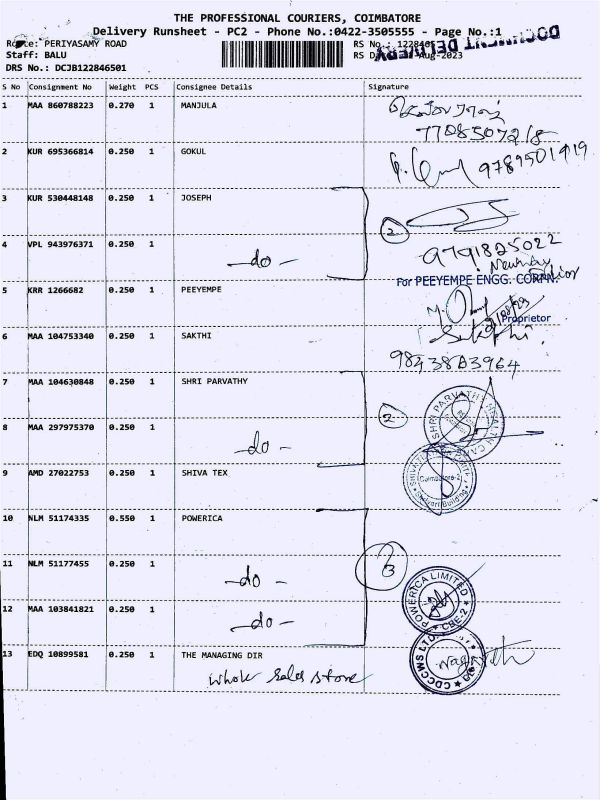 THE PROFESSIONAL COURIERS, COIMBATORE
Delivery Runsheet - PC2 - Phone No.:0422-3505555 - Page No.:1
Route: PERIYASAMY ROAD
Staff: BALU
DRS No.: DCJB122846501
RS No.: 1228465
RS D Aug-2023
DOCUMENT DELIVERY
S No Consignment No Weight PCS Consignee Details Signature
1 MAA 860788223 0.270 1 MANJULA
7708507218
2 KUR 695366814 0.250 1 GOKUL
9789501919
3 KUR 530448148 0.250 1 JOSEPH
2
4 VPL 943976371 0.250 1 -do-
9791825022
For PEEYEMPE ENGG. CORPN.
5 KRR 1266682 0.250 1 PEEYEMPE
Proprietor
6 MAA 104753340 0.250 1 SAKTHI
Sakthi
9843883964
7 MAA 104630848 0.250 1 SHRI PARVATHY
2
SHRI PARVATHY HEALTH CARE
8 MAA 297975370 0.250 1 -do-
9 AMD 27022753 0.250 1 SHIVA TEX
Coimbatore-2
10 NLM 51174335 0.550 1 POWERICA
11 NLM 51177455 0.250 1 -do-
3
POWERICA LIMITED
CBE-2
12 MAA 103841821 0.250 1 -do-
13 EDQ 10899581 0.250 1 THE MANAGING DIR
CDCCWS LTD
whole sales store